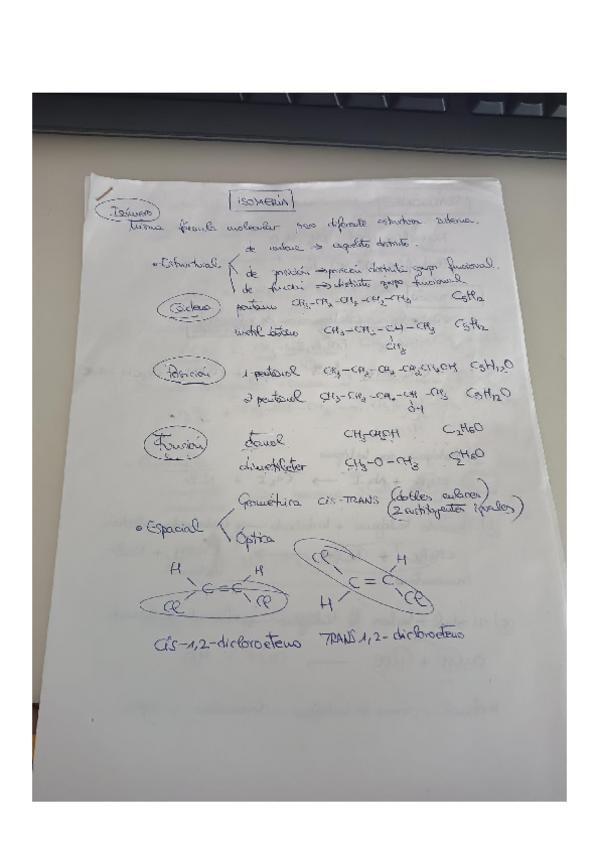 ISOMERÍA
Isómeros
misma fórmula molecular pero diferente estructura interna.
de cadena → esqueleto distinto.
• Estructural
de posición → posición distinta grupo funcional.
de función → distinto grupo funcional
Cadena pentano CH3-CH2-CH2-CH2-CH3 C5H12
metil butano CH3-CH2-CH-CH3 C5H12
CH3
Posición 1 pentanol CH3-CH2-CH2-CH2CH2OH C5H12O
2 pentanol CH3-CH2-CH2-CH-CH3 C5H12O
OH
Función Etanol CH3-CH2OH C2H6O
dimetiléter CH3-O-CH3 C2H6O
Geométrica cis-TRANS (dobles enlaces)
(2 sustituyentes iguales)
• Espacial
Óptica
H H Cl H
C=C C=C
Cl Cl H Cl
Cis-1,2-dicloroeteno TRANS 1,2-dicloroeteno